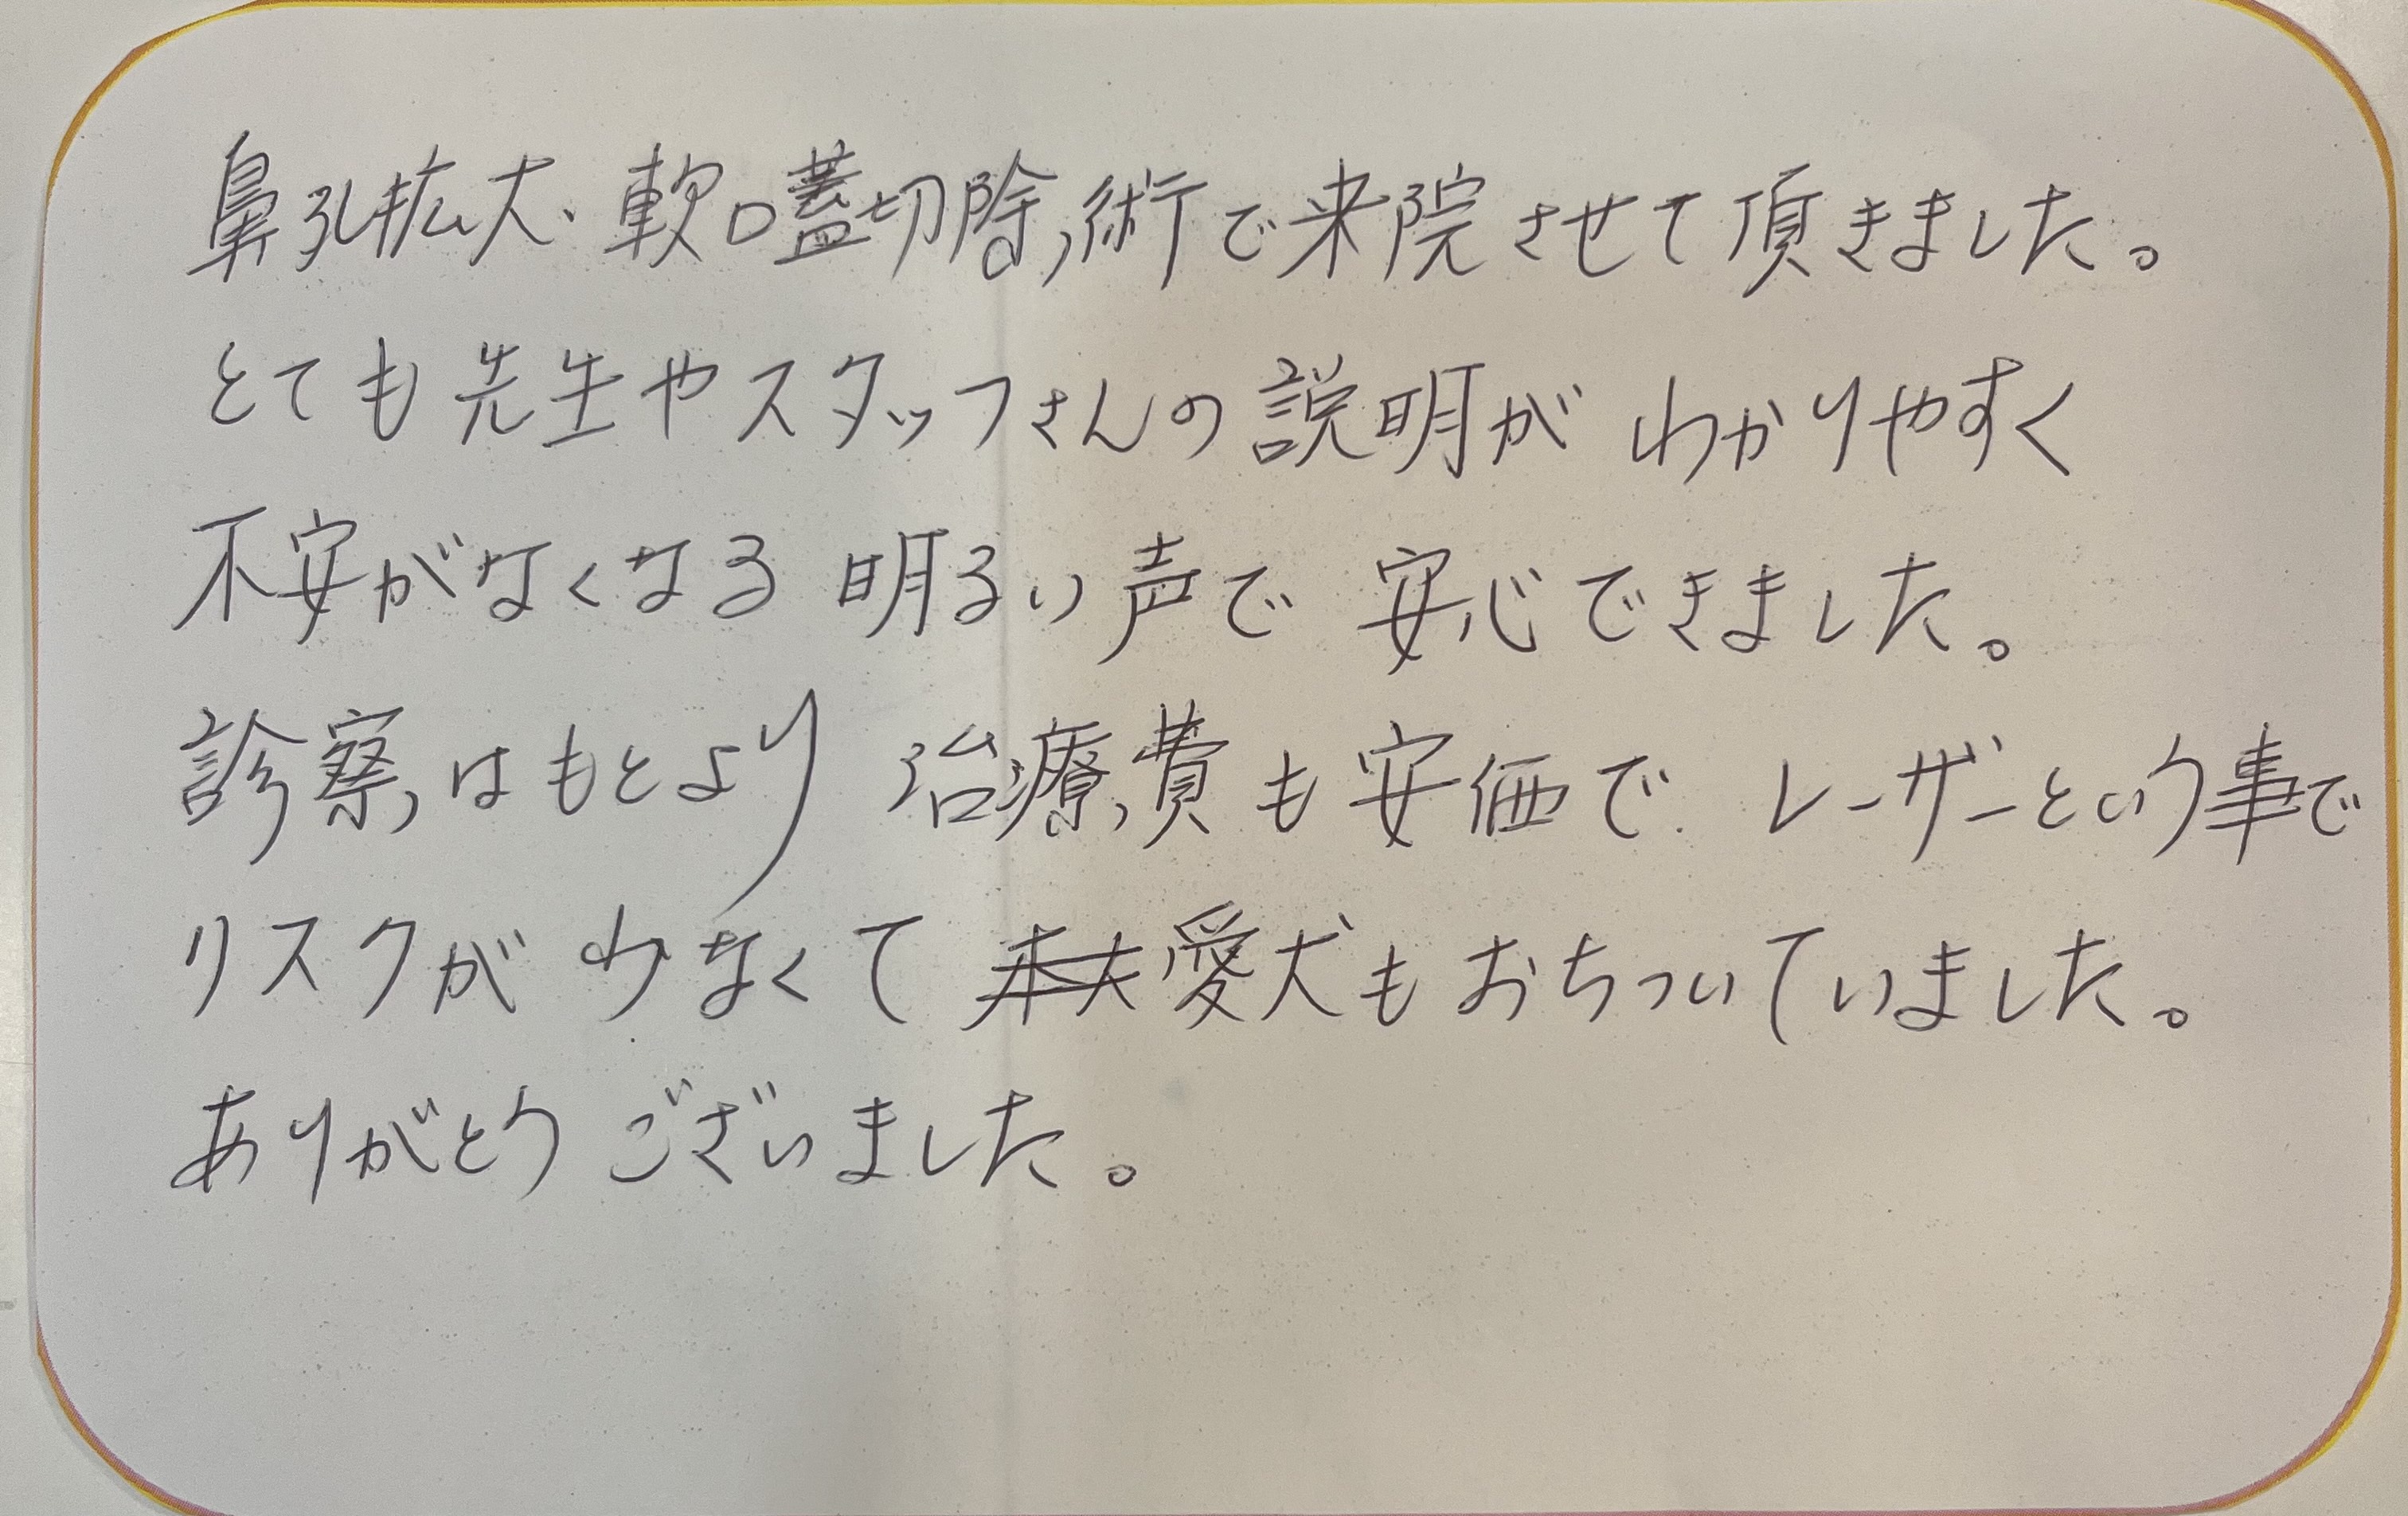 鼻孔拡大、軟口蓋切除術で来院させて頂きました。
とても先生やスタッフさんの説明がわかりやすく
不安がなくなる 明るい声で 安心できました。
診察はもとより 治療費も安価で レーザーという事で
リスクが少なくて 愛犬もおちついていました。
ありがとう ございました。